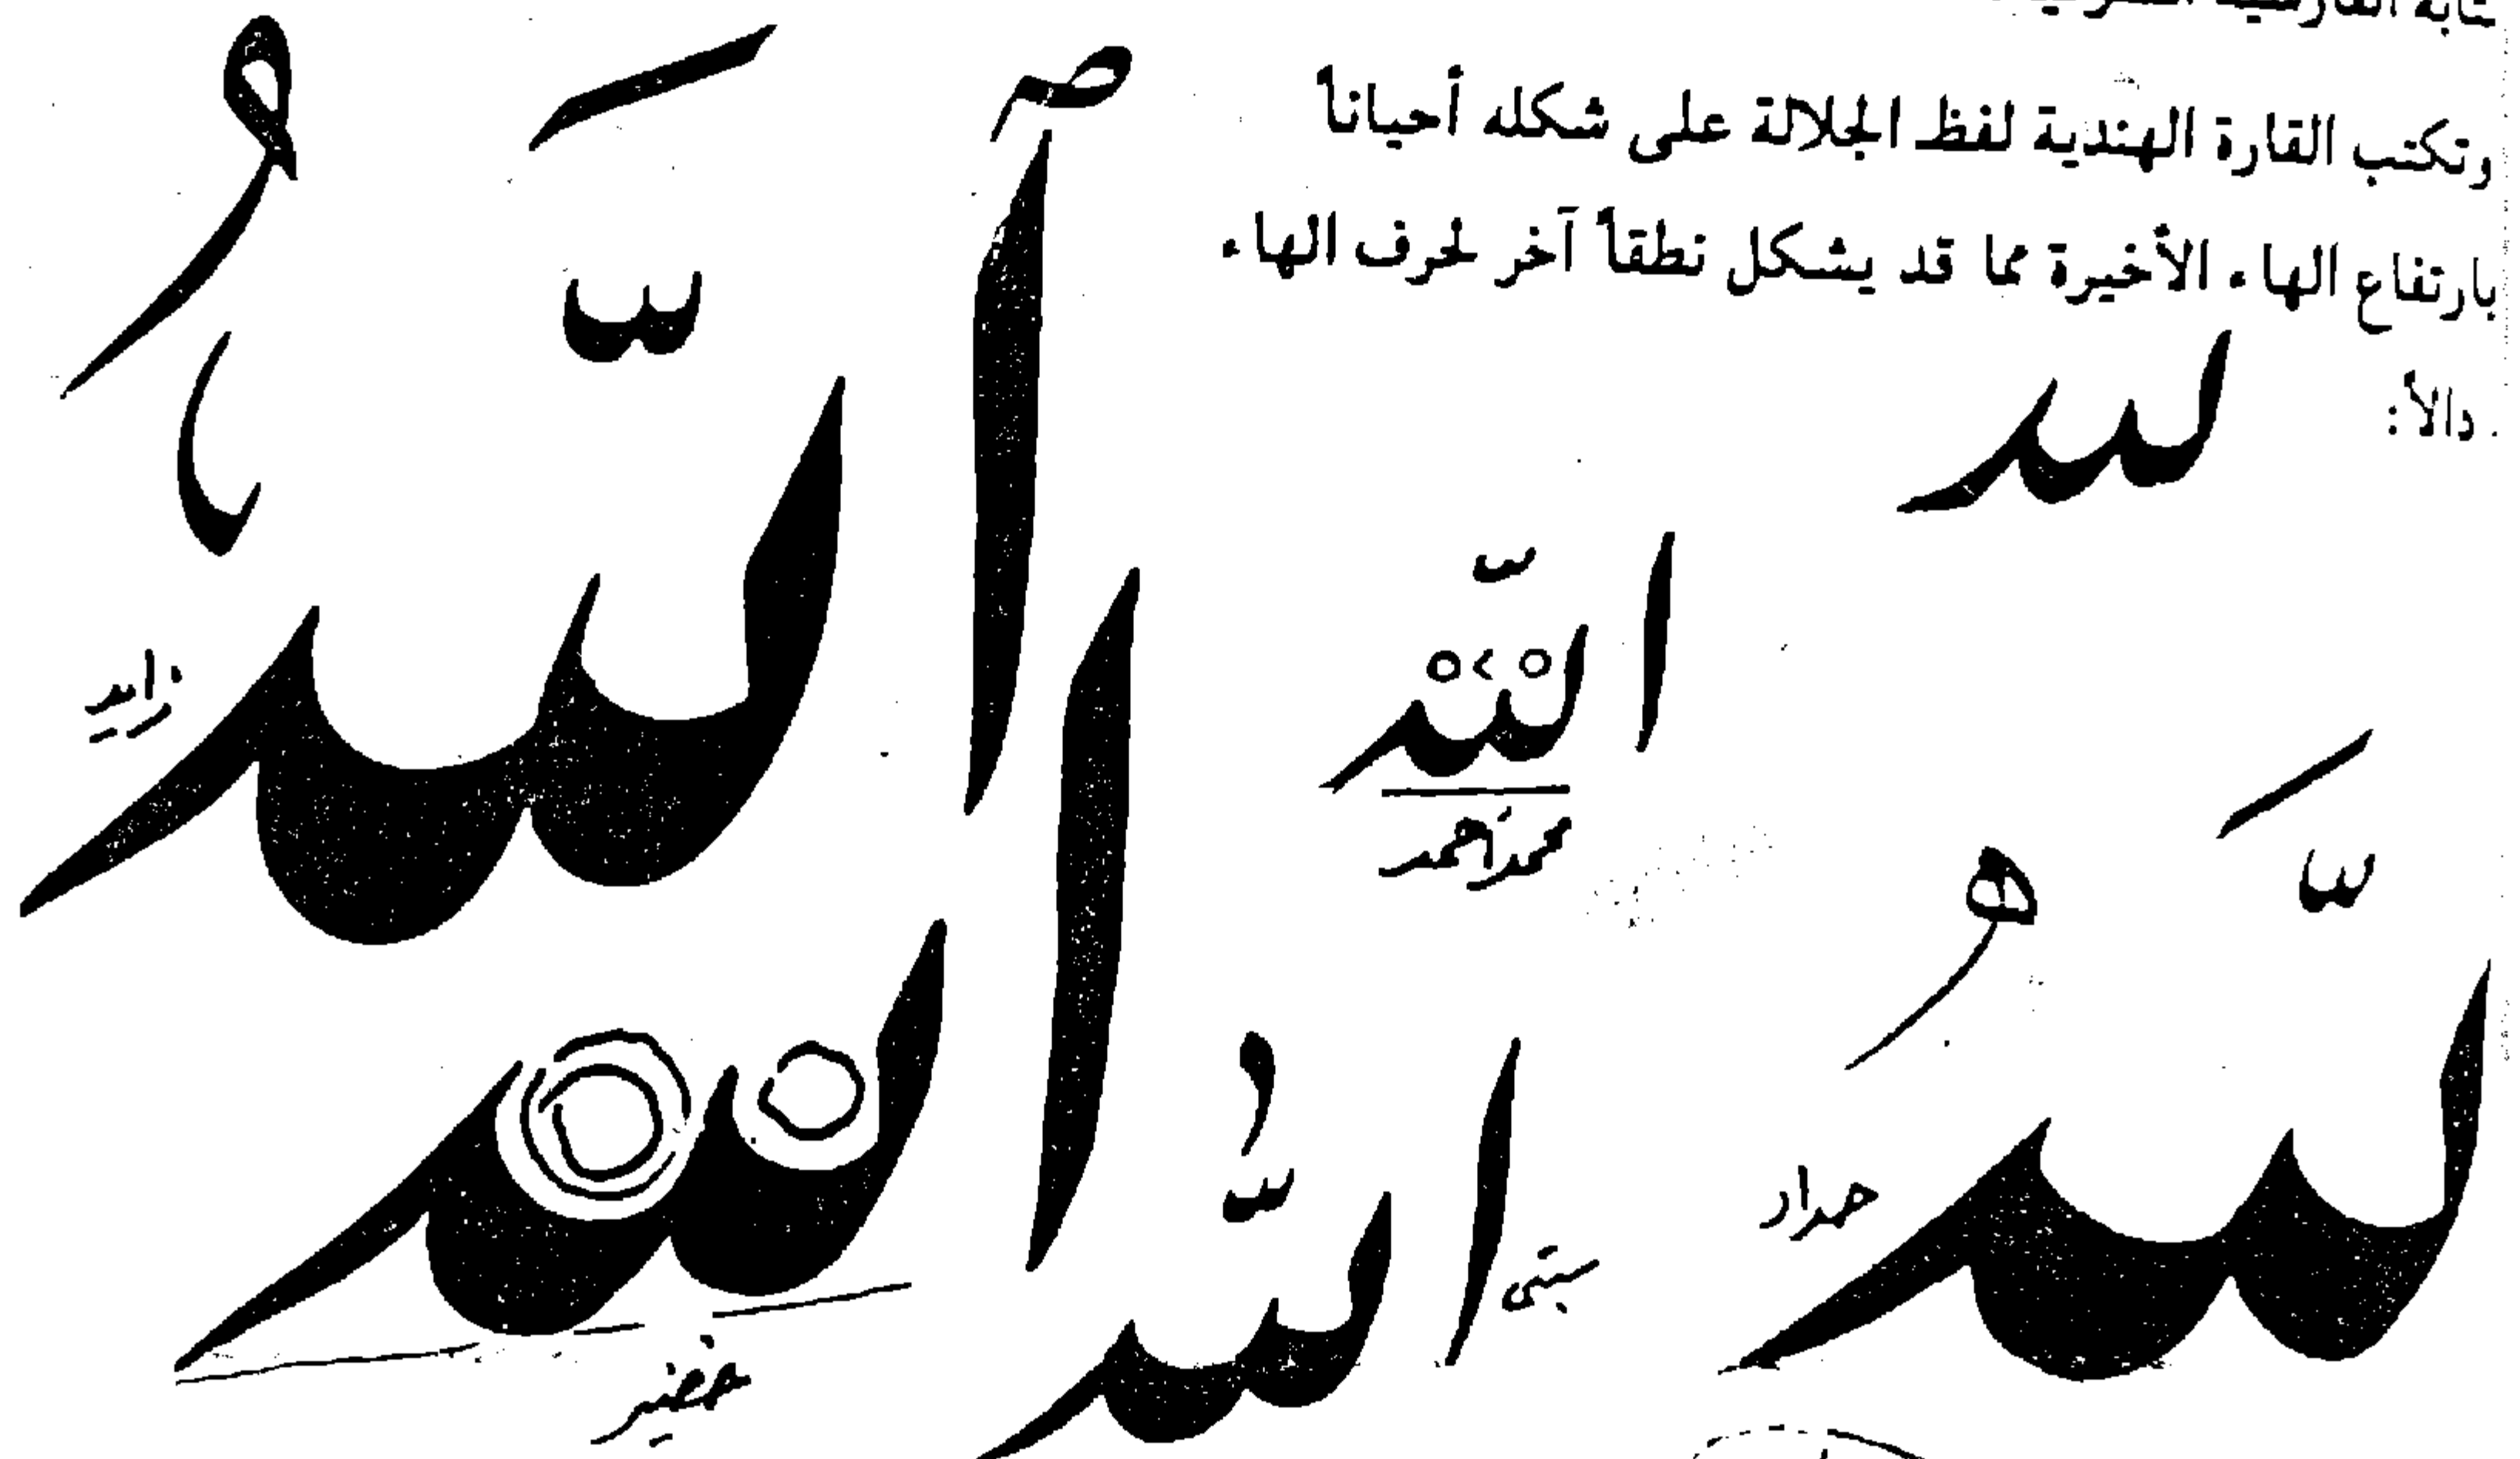 وتكتب القارة الهندية لفظ الجلالة على شكله أحياناً
بارتفاع الهاء الأخيرة مما قد يشكل نطقاً آخر لحرف الهاء
دالاً:
لله
الله
محمد أحمد
الله
الله
الله
حداد
لله